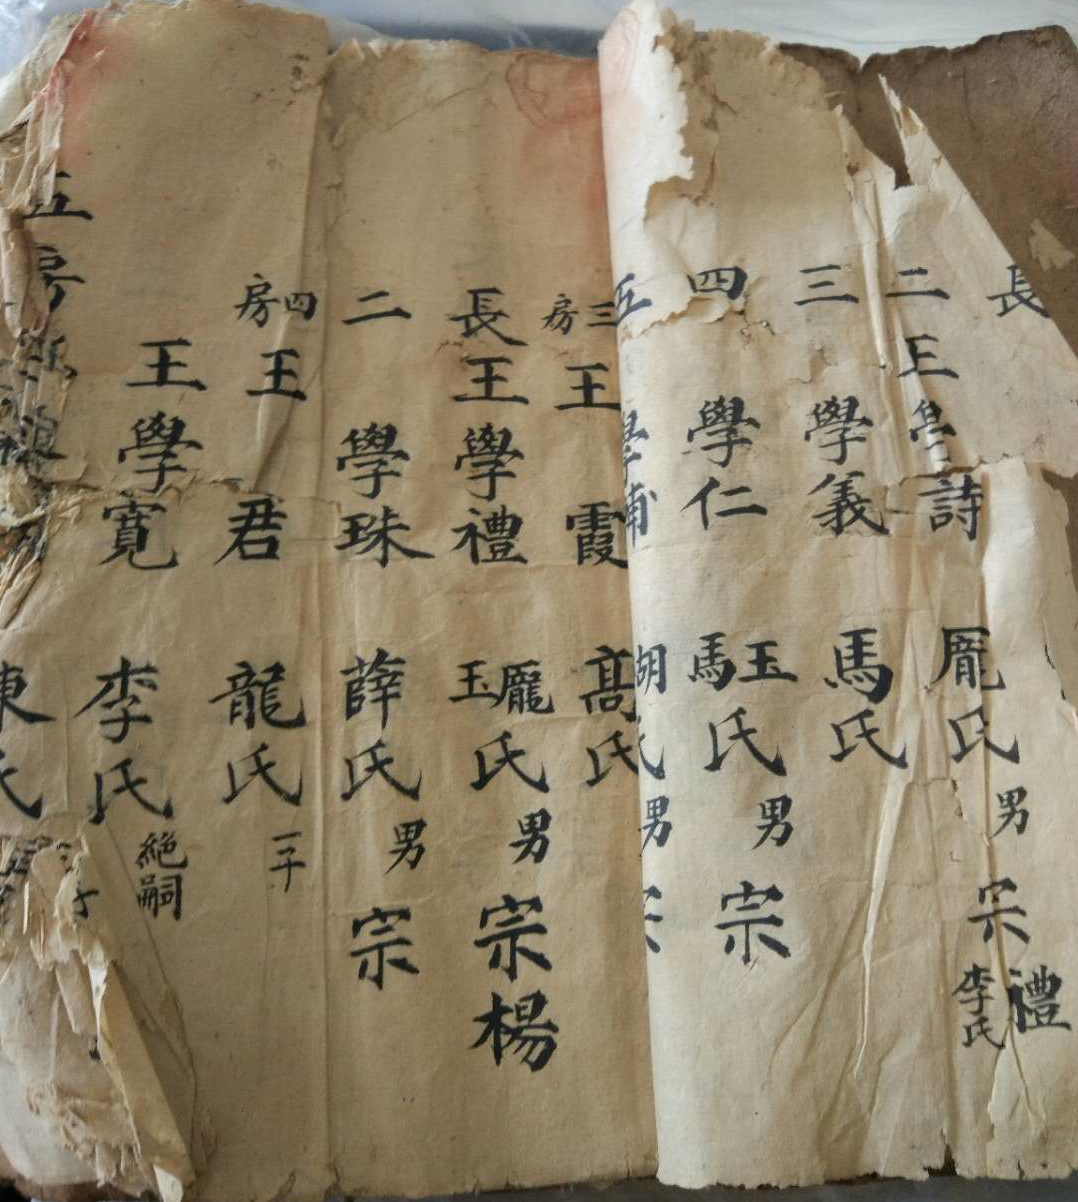 長
二王學詩龎氏男宗禮李氏
三學義馬氏
四學仁玉馬氏男宗
五學甫胡氏男宗
三房王霞高氏
長王學禮龎玉氏男宗楊
二學珠薛氏男宗
四房王君龍氏一子
王學寛李氏絶嗣
五房